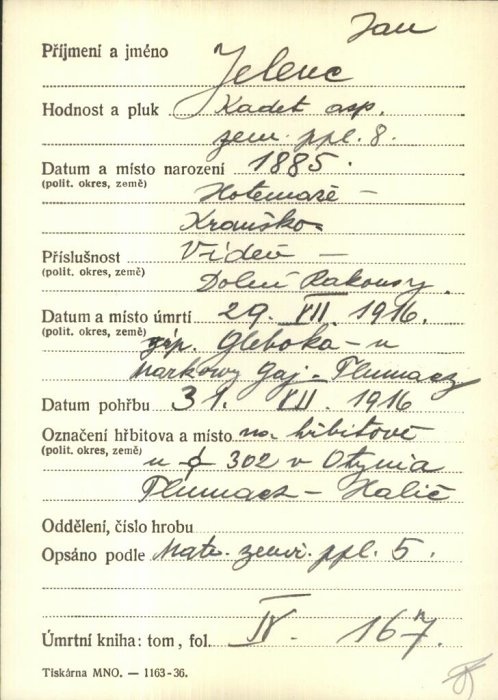 Jan
Příjmení a jméno Jelenc
Hodnost a pluk Kadet asp.
zem. ppl. 8.
Datum a místo narození 1885.
(polit. okres, země)
Hotemaže –
Kraňsko
Příslušnost Vídeň –
(polit. okres, země)
Dolní Rakousy.
Datum a místo úmrtí 29. VII. 1916.
(polit. okres, země)
záp. Gleboka – u
Markowy Gaj – Tlumacz
Datum pohřbu 31. VII. 1916
Označení hřbitova a místo na hřbitově
(polit. okres, země)
u 302 v Otynia
Tlumacz – Halič
Oddělení, číslo hrobu
Opsáno podle Matr. zemř. ppl. 5.
Úmrtní kniha: tom, fol. IV. 167.
Tiskárna MNO. — 1163-36.